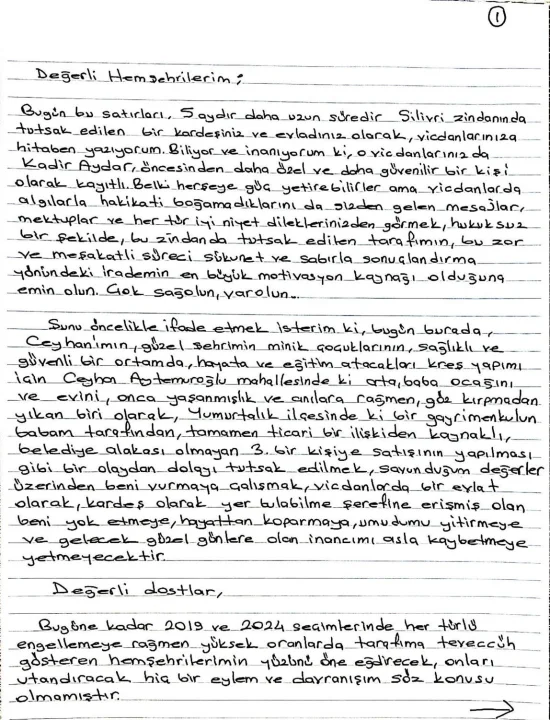 1
Değerli Hemşehrilerim;
Bugün bu satırları, 5 aydır daha uzun süredir Silivri zindanında
tutsak edilen bir kardeşiniz ve evladınız olarak, vicdanlarınıza
hitaben yazıyorum. Biliyor ve inanıyorum ki, o vicdanlarınız da
Kadir Aydar, öncesinden daha özel ve daha güvenilir bir kişi
olarak kayıtlı. Belki herşeye güç yetirebilirler ama vicdanlarda
algılarla hakikati boğamadıklarını da sizden gelen mesajlar,
mektuplar ve her tür iyi niyet dileklerinizden görmek, hukuksuz
bir şekilde, bu zindanda tutsak edilen tarafımın, bu zor
ve meşakatli süreci sükunet ve sabırla sonuçlandırma
yönündeki irademin en büyük motivasyon kaynağı olduğuna
emin olun. Çok sağolun, varolun...
Şunu öncelikle ifade etmek isterim ki, bugün burada,
Ceyhan'ımın, güzel şehrimin minik çocuklarının, sağlıklı ve
güvenli bir ortamda, hayata ve eğitim atacakları kreş yapımı
için Ceyhan Aytemuroğlu mahallesinde ki ata, baba ocağını
ve evini, onca yaşanmışlık ve anılara rağmen, göz kırpmadan
yıkan biri olarak, Yumurtalık ilçesinde ki bir gayrimenkulun
babam tarafından, tamamen ticari bir ilişkiden kaynaklı,
belediye alakası olmayan 3. bir kişiye satışının yapılması
gibi bir olaydan dolayı tutsak edilmek, savunduğum değerler
üzerinden beni vurmaya çalışmak, vicdanlarda bir evlat
olarak, kardeş olarak yer bulabilme şerefine erişmiş olan
beni yok etmeye, hayattan koparmaya, umudumu yitirmeye
ve gelecek güzel günlere olan inancımı asla kaybetmeye
yetmeyecektir.
Değerli dostlar,
Bugüne kadar 2019 ve 2024 seçimlerinde her türlü
engellemeye rağmen yüksek oranlarda tarafıma teveccüh
gösteren hemşehrilerimin yüzünü öne eğdirecek, onları
utandıracak hiç bir eylem ve davranışım söz konusu
olmamıştır.